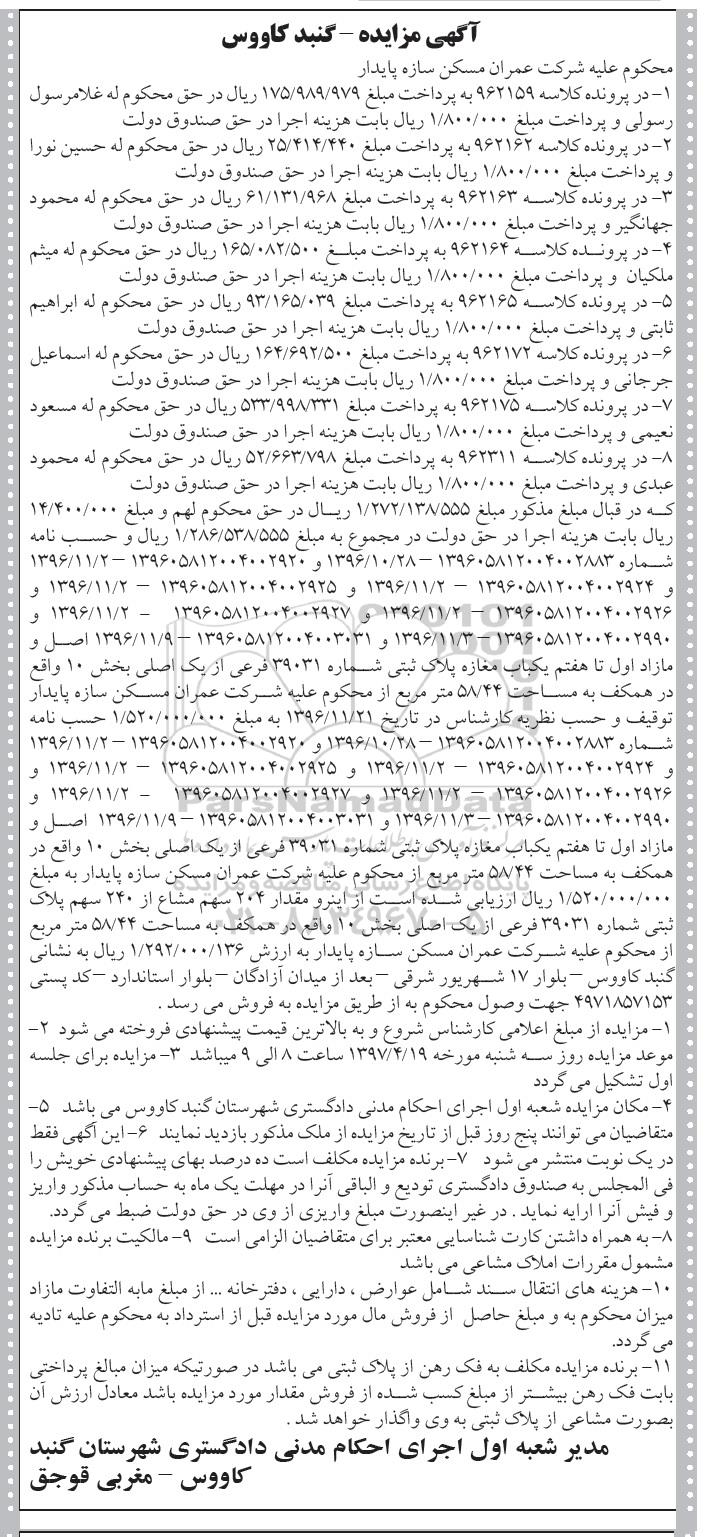 آگهی مزایده – گنبد کاووس
محکوم علیه شرکت عمران مسکن سازه پایدار
۱- در پرونده کلاسه ۹۶۲۱۵۹ به پرداخت مبلغ ۱۷۵/۹۸۹/۹۷۹ ریال در حق محکوم له غلامرسول
رسولی و پرداخت مبلغ ۱/۸۰۰/۰۰۰ ریال بابت هزینه اجرا در حق صندوق دولت
۲- در پرونده کلاسه ۹۶۲۱۶۲ به پرداخت مبلغ ۲۵/۴۱۴/۴۴۰ ریال در حق محکوم له حسین نورا
و پرداخت مبلغ ۱/۸۰۰/۰۰۰ ریال بابت هزینه اجرا در حق صندوق دولت
۳- در پرونده کلاسه ۹۶۲۱۶۳ به پرداخت مبلغ ۶۱/۱۳۱/۹۶۸ ریال در حق محکوم له محمود
جهانگیر و پرداخت مبلغ ۱/۸۰۰/۰۰۰ ریال بابت هزینه اجرا در حق صندوق دولت
۴- در پرونده کلاسه ۹۶۲۱۶۴ به پرداخت مبلغ ۱۶۵/۰۸۲/۵۰۰ ریال در حق محکوم له میثم
ملکیان و پرداخت مبلغ ۱/۸۰۰/۰۰۰ ریال بابت هزینه اجرا در حق صندوق دولت
۵- در پرونده کلاسه ۹۶۲۱۶۵ به پرداخت مبلغ ۹۳/۱۶۵/۰۳۹ ریال در حق محکوم له ابراهیم
ثابتی و پرداخت مبلغ ۱/۸۰۰/۰۰۰ ریال بابت هزینه اجرا در حق صندوق دولت
۶- در پرونده کلاسه ۹۶۲۱۷۲ به پرداخت مبلغ ۱۶۴/۶۹۲/۵۰۰ ریال در حق محکوم له اسماعیل
جرجانی و پرداخت مبلغ ۱/۸۰۰/۰۰۰ ریال بابت هزینه اجرا در حق صندوق دولت
۷- در پرونده کلاسه ۹۶۲۱۷۵ به پرداخت مبلغ ۵۳۳/۹۹۸/۳۳۱ ریال در حق محکوم له مسعود
نعیمی و پرداخت مبلغ ۱/۸۰۰/۰۰۰ ریال بابت هزینه اجرا در حق صندوق دولت
۸- در پرونده کلاسه ۹۶۲۳۱۱ به پرداخت مبلغ ۵۲/۶۶۳/۷۹۸ ریال در حق محکوم له محمود
عبدی و پرداخت مبلغ ۱/۸۰۰/۰۰۰ ریال بابت هزینه اجرا در حق صندوق دولت
که در قبال مبلغ مذکور مبلغ ۱/۲۷۲/۱۳۸/۵۵۵ ریال در حق محکوم لهم و مبلغ ۱۴/۴۰۰/۰۰۰
ریال بابت هزینه اجرا در حق دولت در مجموع به مبلغ ۱/۲۸۶/۵۳۸/۵۵۵ ریال و حسب نامه
شماره ۱۳۹۶۰۵۸۱۲۰۰۴۰۰۲۸۸۳ – ۱۳۹۶/۱۰/۲۸ و ۱۳۹۶۰۵۸۱۲۰۰۴۰۰۲۹۲۰ – ۱۳۹۶/۱۱/۲
و ۱۳۹۶۰۵۸۱۲۰۰۴۰۰۲۹۲۴ – ۱۳۹۶/۱۱/۲ و ۱۳۹۶۰۵۸۱۲۰۰۴۰۰۲۹۲۵ – ۱۳۹۶/۱۱/۲ و
۱۳۹۶۰۵۸۱۲۰۰۴۰۰۲۹۲۶ – ۱۳۹۶/۱۱/۲ و ۱۳۹۶۰۵۸۱۲۰۰۴۰۰۲۹۲۷ - ۱۳۹۶/۱۱/۲ و
۱۳۹۶۰۵۸۱۲۰۰۴۰۰۲۹۹۰ – ۱۳۹۶/۱۱/۳ و ۱۳۹۶۰۵۸۱۲۰۰۴۰۰۳۰۳۱ – ۱۳۹۶/۱۱/۹ اصل و
مازاد اول تا هفتم یکباب مغازه پلاک ثبتی شماره ۳۹۰۳۱ فرعی از یک اصلی بخش ۱۰ واقع
در همکف به مساحت ۵۸/۴۴ متر مربع از محکوم علیه شرکت عمران مسکن سازه پایدار
توقیف و حسب نظریه کارشناس در تاریخ ۱۳۹۶/۱۱/۲۱ به مبلغ ۱/۵۲۰/۰۰۰/۰۰۰ حسب نامه
شماره ۱۳۹۶۰۵۸۱۲۰۰۴۰۰۲۸۸۳ – ۱۳۹۶/۱۰/۲۸ و ۱۳۹۶۰۵۸۱۲۰۰۴۰۰۲۹۲۰ – ۱۳۹۶/۱۱/۲
و ۱۳۹۶۰۵۸۱۲۰۰۴۰۰۲۹۲۴ – ۱۳۹۶/۱۱/۲ و ۱۳۹۶۰۵۸۱۲۰۰۴۰۰۲۹۲۵ – ۱۳۹۶/۱۱/۲ و
۱۳۹۶۰۵۸۱۲۰۰۴۰۰۲۹۲۶ – ۱۳۹۶/۱۱/۲ و ۱۳۹۶۰۵۸۱۲۰۰۴۰۰۲۹۲۷ - ۱۳۹۶/۱۱/۲ و
۱۳۹۶۰۵۸۱۲۰۰۴۰۰۲۹۹۰ – ۱۳۹۶/۱۱/۳ و ۱۳۹۶۰۵۸۱۲۰۰۴۰۰۳۰۳۱ – ۱۳۹۶/۱۱/۹ اصل و
مازاد اول تا هفتم یکباب مغازه پلاک ثبتی شماره ۳۹۰۳۱ فرعی از یک اصلی بخش ۱۰ واقع در
همکف به مساحت ۵۸/۴۴ متر مربع از محکوم علیه شرکت عمران مسکن سازه پایدار به مبلغ
۱/۵۲۰/۰۰۰/۰۰۰ ریال ارزیابی شده است از اینرو مقدار ۲۰۴ سهم مشاع از ۲۴۰ سهم پلاک
ثبتی شماره ۳۹۰۳۱ فرعی از یک اصلی بخش ۱۰ واقع در همکف به مساحت ۵۸/۴۴ متر مربع
از محکوم علیه شرکت عمران مسکن سازه پایدار به ارزش ۱/۲۹۲/۰۰۰/۱۳۶ ریال به نشانی
گنبد کاووس – بلوار ۱۷ شهریور شرقی – بعد از میدان آزادگان – بلوار استاندارد – کد پستی
۴۹۷۱۸۵۷۱۵۳ جهت وصول محکوم به از طریق مزایده به فروش می رسد .
۱- مزایده از مبلغ اعلامی کارشناس شروع و به بالاترین قیمت پیشنهادی فروخته می شود ۲-
موعد مزایده روز سه شنبه مورخه ۱۳۹۷/۴/۱۹ ساعت ۸ الی ۹ میباشد ۳- مزایده برای جلسه
اول تشکیل می گردد
۴- مکان مزایده شعبه اول اجرای احکام مدنی دادگستری شهرستان گنبد کاووس می باشد ۵-
متقاضیان می توانند پنج روز قبل از تاریخ مزایده از ملک مذکور بازدید نمایند ۶- این آگهی فقط
در یک نوبت منتشر می شود ۷- برنده مزایده مکلف است ده درصد بهای پیشنهادی خویش را
فی المجلس به صندوق دادگستری تودیع و الباقی آنرا در مهلت یک ماه به حساب مذکور واریز
و فیش آنرا ارایه نماید . در غیر اینصورت مبلغ واریزی از وی در حق دولت ضبط می گردد.
۸- به همراه داشتن کارت شناسایی معتبر برای متقاضیان الزامی است ۹- مالکیت برنده مزایده
مشمول مقررات املاک مشاعی می باشد
۱۰- هزینه های انتقال سند شامل عوارض ، دارایی ، دفترخانه ... از مبلغ مابه التفاوت مازاد
میزان محکوم به و مبلغ حاصل از فروش مال مورد مزایده قبل از استرداد به محکوم علیه تادیه
می گردد.
۱۱- برنده مزایده مکلف به فک رهن از پلاک ثبتی می باشد در صورتیکه میزان مبالغ پرداختی
بابت فک رهن بیشتر از مبلغ کسب شده از فروش مقدار مورد مزایده باشد معادل ارزش آن
بصورت مشاعی از پلاک ثبتی به وی واگذار خواهد شد .
مدیر شعبه اول اجرای احکام مدنی دادگستری شهرستان گنبد
کاووس – مغربی قوجق
ParsNamadData